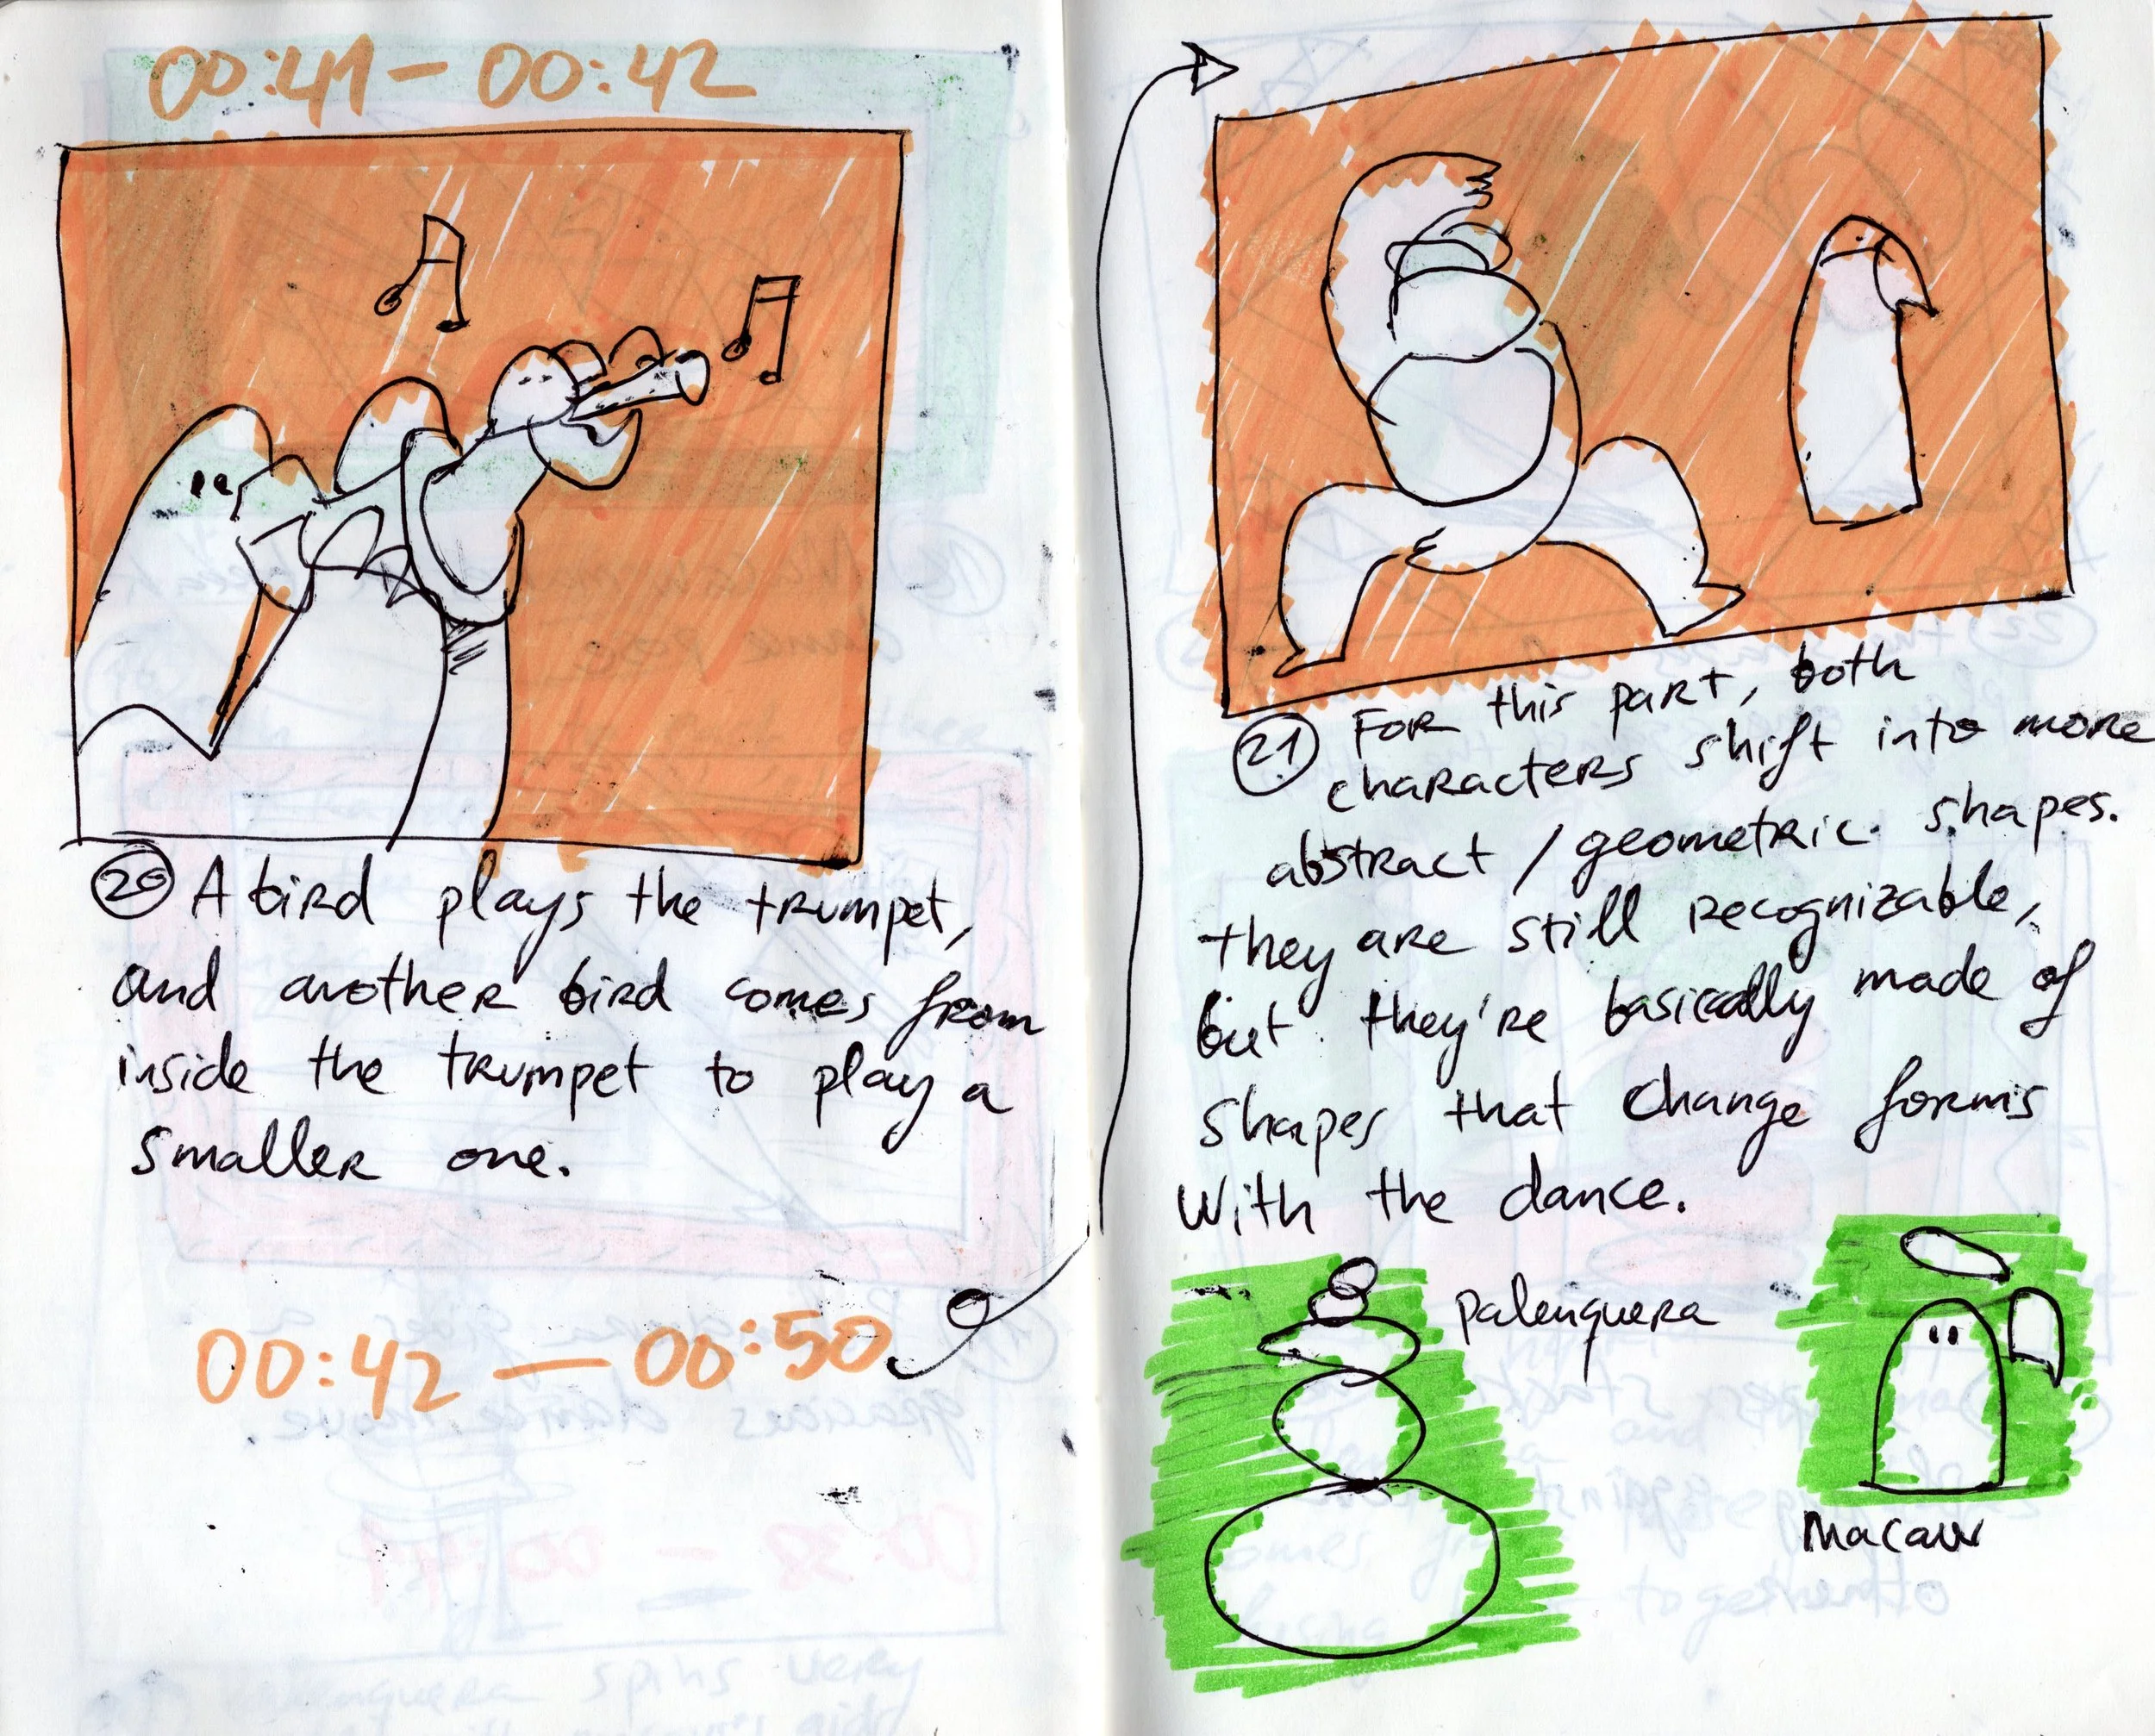 00:41 — 00:42
20 A bird plays the trumpet,
and another bird comes from
inside the trumpet to play a
smaller one.
00:42 — 00:50
21 For this part, both
characters shift into more
abstract / geometric shapes.
they are still recognizable,
but they're basically made of
shapes that change forms
with the dance.
Palenquera
Macaw